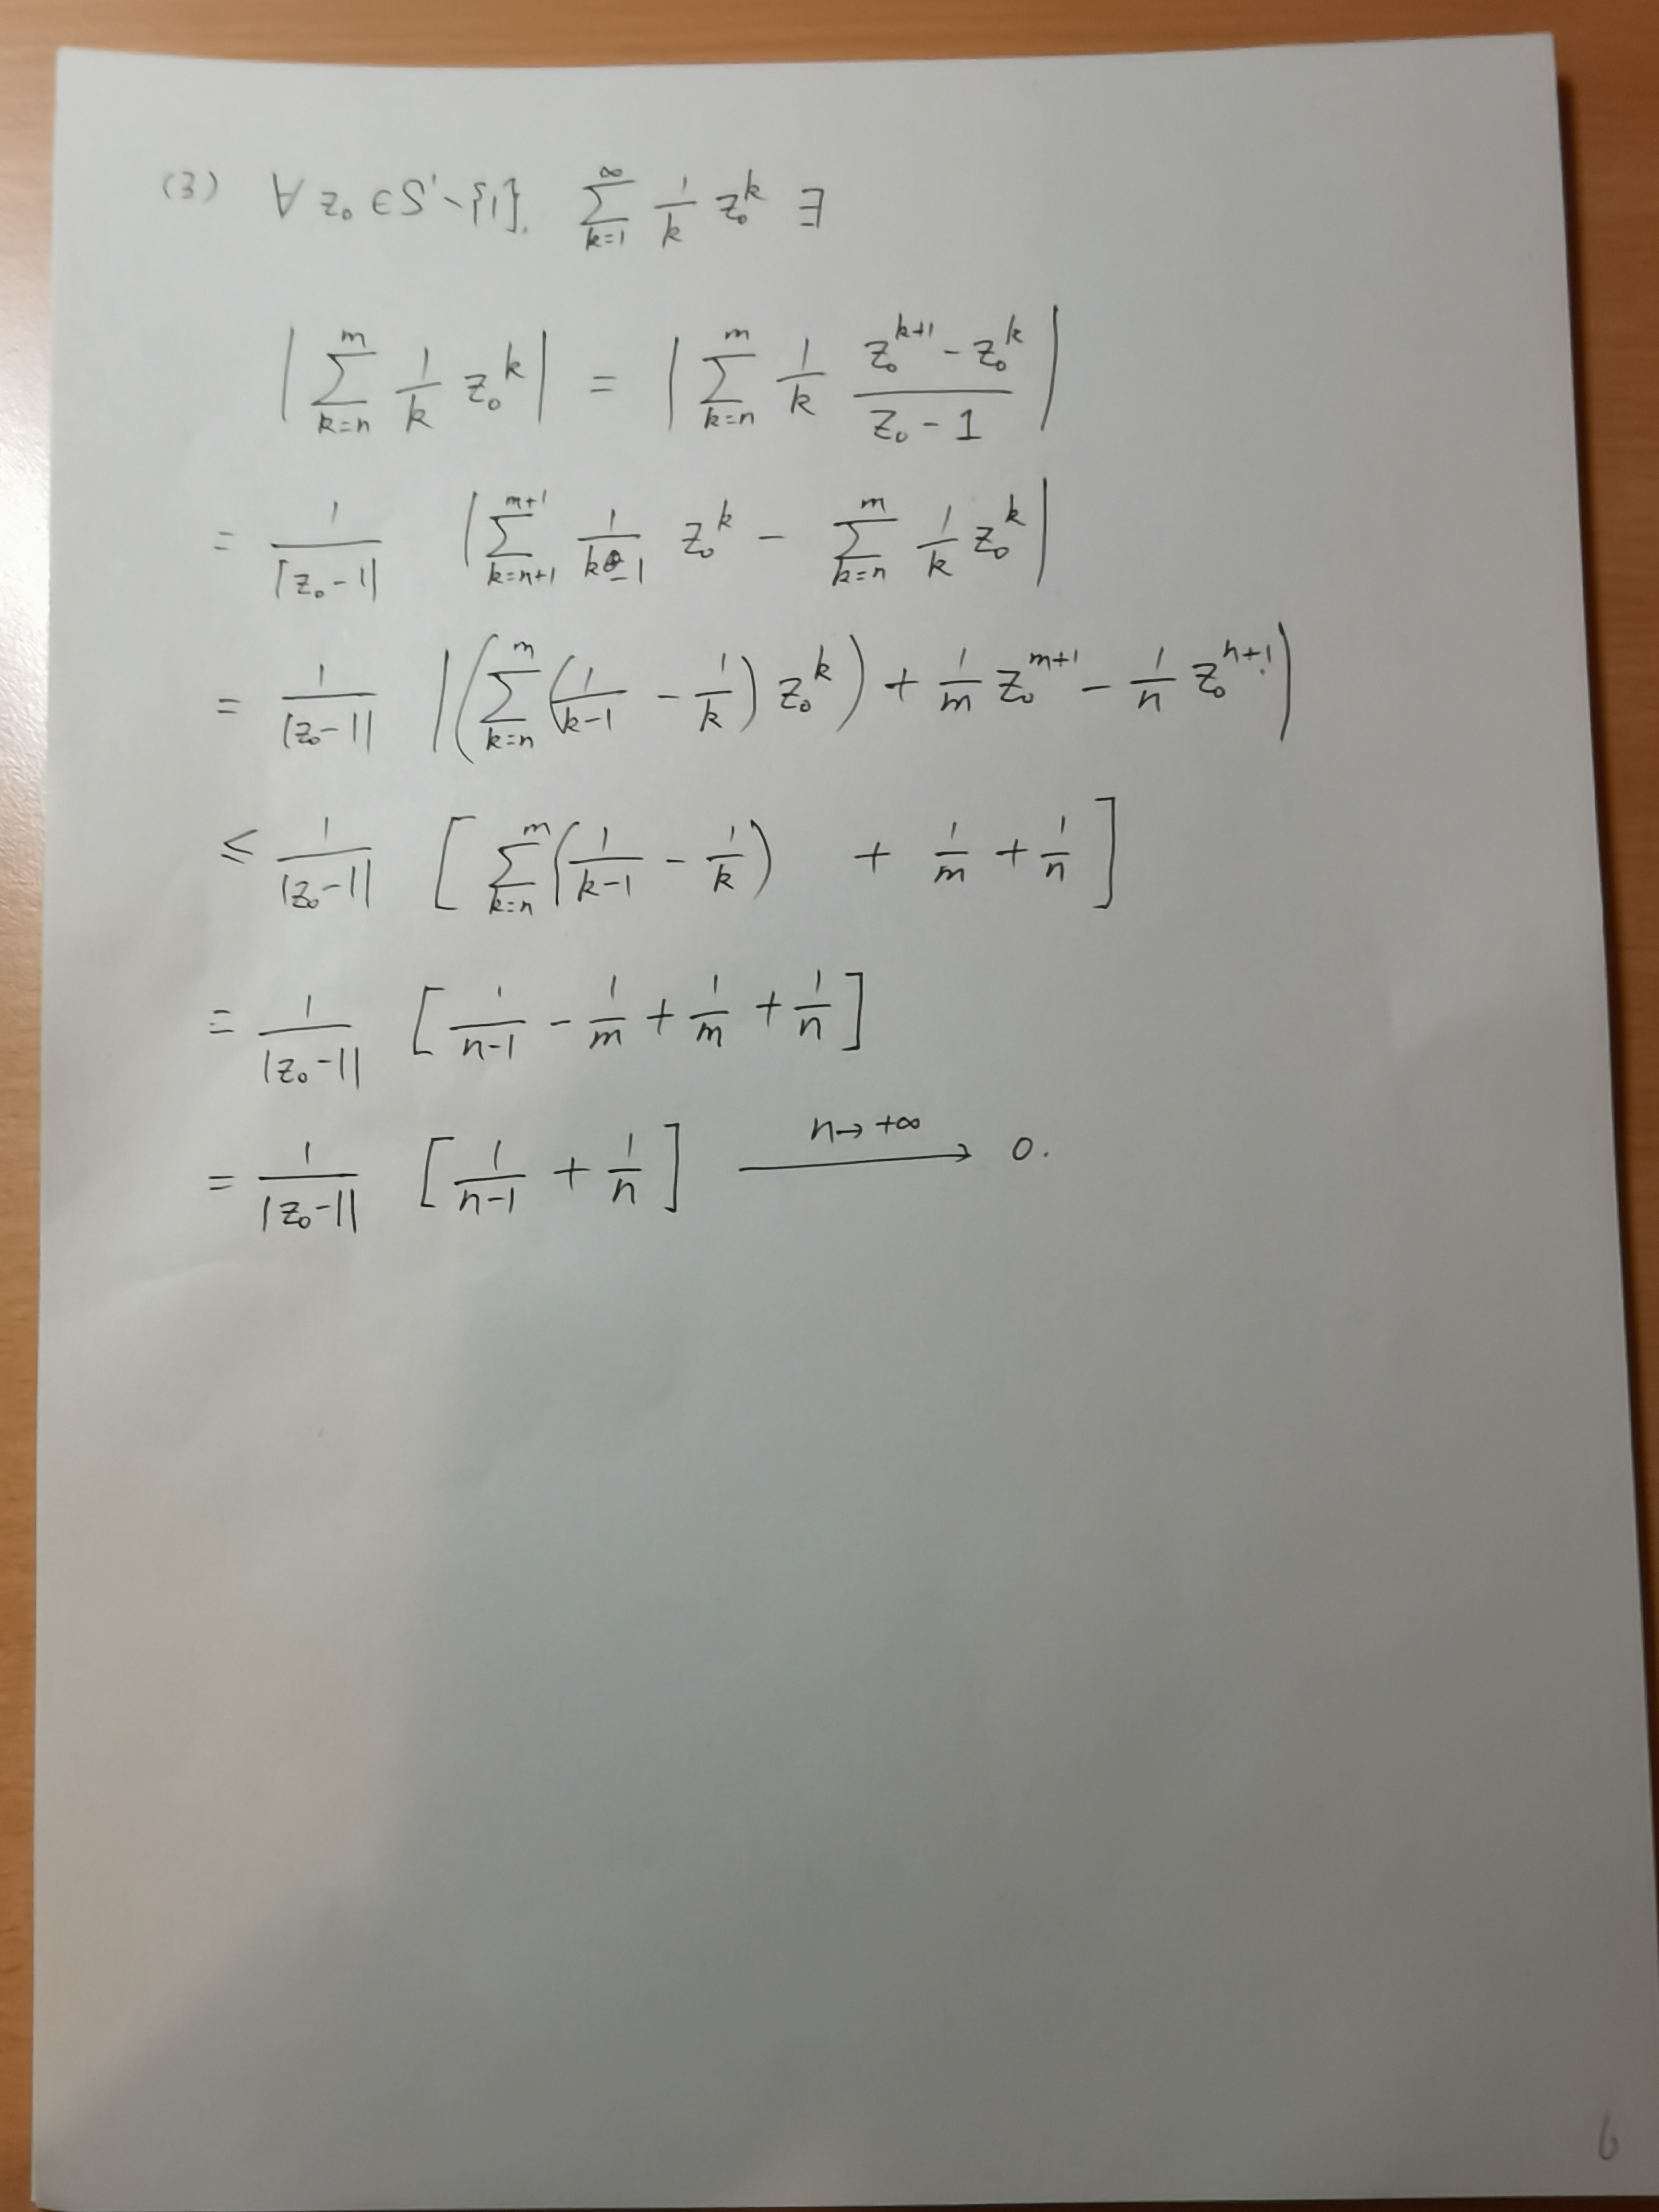 (3) ∀ z₀ ∈ S¹ \ {1}, ∑_{k=1}^{∞} \frac{1}{k} z₀^k ∃
| ∑_{k=n}^{m} \frac{1}{k} z₀^k | = | ∑_{k=n}^{m} \frac{1}{k} \frac{z₀^{k+1} - z₀^k}{z₀ - 1} |
= \frac{1}{|z₀ - 1|} | ∑_{k=n+1}^{m+1} \frac{1}{k-1} z₀^k - ∑_{k=n}^{m} \frac{1}{k} z₀^k |
= \frac{1}{|z₀ - 1|} | ( ∑_{k=n}^{m} ( \frac{1}{k-1} - \frac{1}{k} ) z₀^k ) + \frac{1}{m} z₀^{m+1} - \frac{1}{n} z₀^{n+1} |
≤ \frac{1}{|z₀ - 1|} [ ∑_{k=n}^{m} ( \frac{1}{k-1} - \frac{1}{k} ) + \frac{1}{m} + \frac{1}{n} ]
= \frac{1}{|z₀ - 1|} [ \frac{1}{n-1} - \frac{1}{m} + \frac{1}{m} + \frac{1}{n} ]
= \frac{1}{|z₀ - 1|} [ \frac{1}{n-1} + \frac{1}{n} ] \xrightarrow{n → +∞} 0.
6